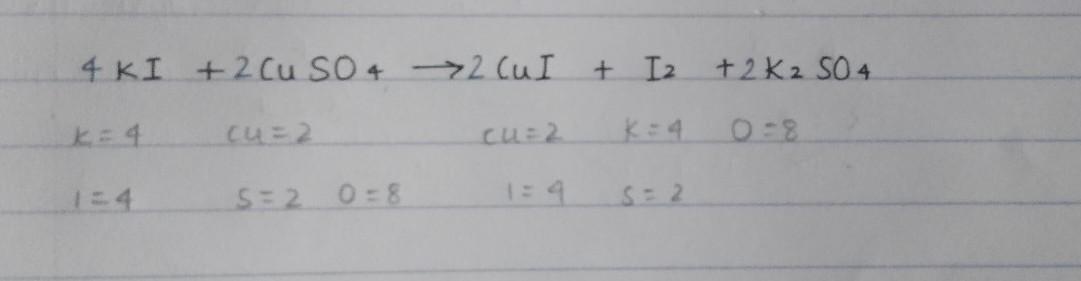 4 KI + 2 CuSO4 → 2 CuI + I2 + 2 K2SO4
K=4 Cu=2 Cu=2 K=4 O=8
I=4 S=2 O=8 I=4 S=2